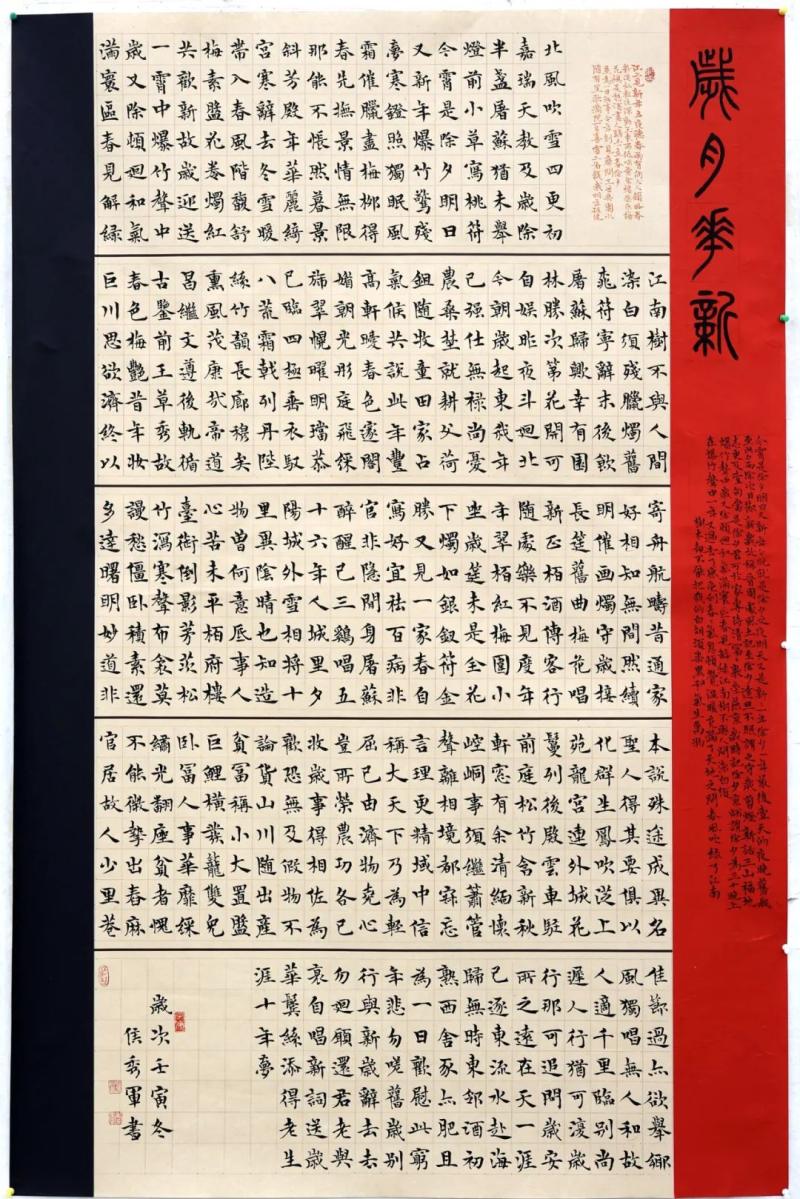 歲月華新
北風吹雪四更初
嘉瑞天教及歲除
半盞屠蘇猶未舉
燈前小草寫桃符
今宵是除夕明日
又新年爆竹驚殘
夢寒鐙照獨眠風
霜催臘盡梅柳得
春先撫景情無限
那能不悵然暮景
斜芳殿年華麗綺
宮寒辭去冬雪暖
帶入春風階馥舒
梅素盤花卷燭紅
共歡新故歲迎送
一宵中爆竹聲中
歲又除頓迴和氣
滿寰區春見解綠
江南樹不與人間
染白須殘臘燭舊
桃符寧辭末後飲
屠蘇歸歟幸有園
林勝次第花開可
自娛昨夜斗迴北
今朝歲起東我年
已強仕無祿尚憂
農桑埜就耕父荷
鉏隨牧童田家占
氣候共說此年豐
高軒曖春色邃閣
媚朝光彤庭飛綵
旆翠幌曜明璫恭
已臨四極垂衣馭
八荒霜戟列丹陛
絲竹韻長廊穆矣
熏風茂康哉帝道
昌繼文遵後軌循
古鑒前王草秀故
春色梅艷昔年妝
巨川思欲濟終以
寄舟航疇昔通家
好相知無間然續
明催画燭守歲接
長筵舊曲梅花唱
新正栢酒傳客行
隨處樂不見度年
年翠栢紅梅圍小
坐歲筵未是全花
下燭如銀釵符金
勝又見一家春自
寫好宜祛百病非
官非隱閒身屠蘇
醉醒已三鷄唱五
十六年人城里夕
陽城外雪相將十
里異陰晴也知造
物曾何意底事人
心苦未平栢府樓
臺銜倒影茅茨松
竹瀉寒聲布衾莫
謾愁僵卧積素還
多達曙明妙道非
本說殊途成異名
聖人得其要俱以
化群生鳳吹泛上
苑龍宮連外城花
鬘列後殿雲車駐
前庭松竹含新秋
軒窓有余清緬懷
崆峒事須繼簫管
聲離相境都寐忘
言理更精域中信
稱大天下乃為輕
屈已由濟物堯心
豈所榮農功各已
收歲事得相佐為
歡恐無及假物不
論貨山川隨出產
貧富稱小大置盤
巨鯉橫發籠雙兔
卧富人事華靡綵
繡光翻座貧者愧
不能微摯出春磨
官居故人少里巷
佳節過亦欲舉鄉
風獨唱無人和故
人適千里臨別尚
遲人行猶可復歲
行那可追問歲安
所之遠在天一涯
已逐東流水赴海
歸無時東鄰酒初
熟西舍豕亦肥且
為一日歡慰此窮
年悲勿嗟舊歲別
行與新歲辭去去
勿迴顧還君老與
哀自唱新詞送歲
華鬢絲添得老生
涯十年夢
歲次壬寅冬
侯秀軍書